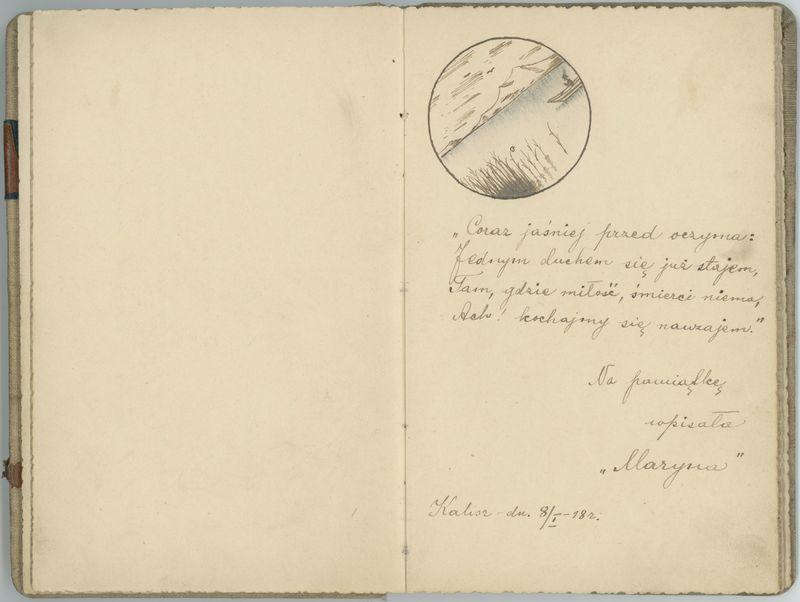 „Coraz jaśniej przed oczyma:
Jednym duchem się już stajem,
Tam, gdzie miłość, śmierci niema,
Ach! kochajmy się nawzajem."
Na pamiątkę
wpisała
„Maryna"
Kalisz - dn. 8/I - 18 r.